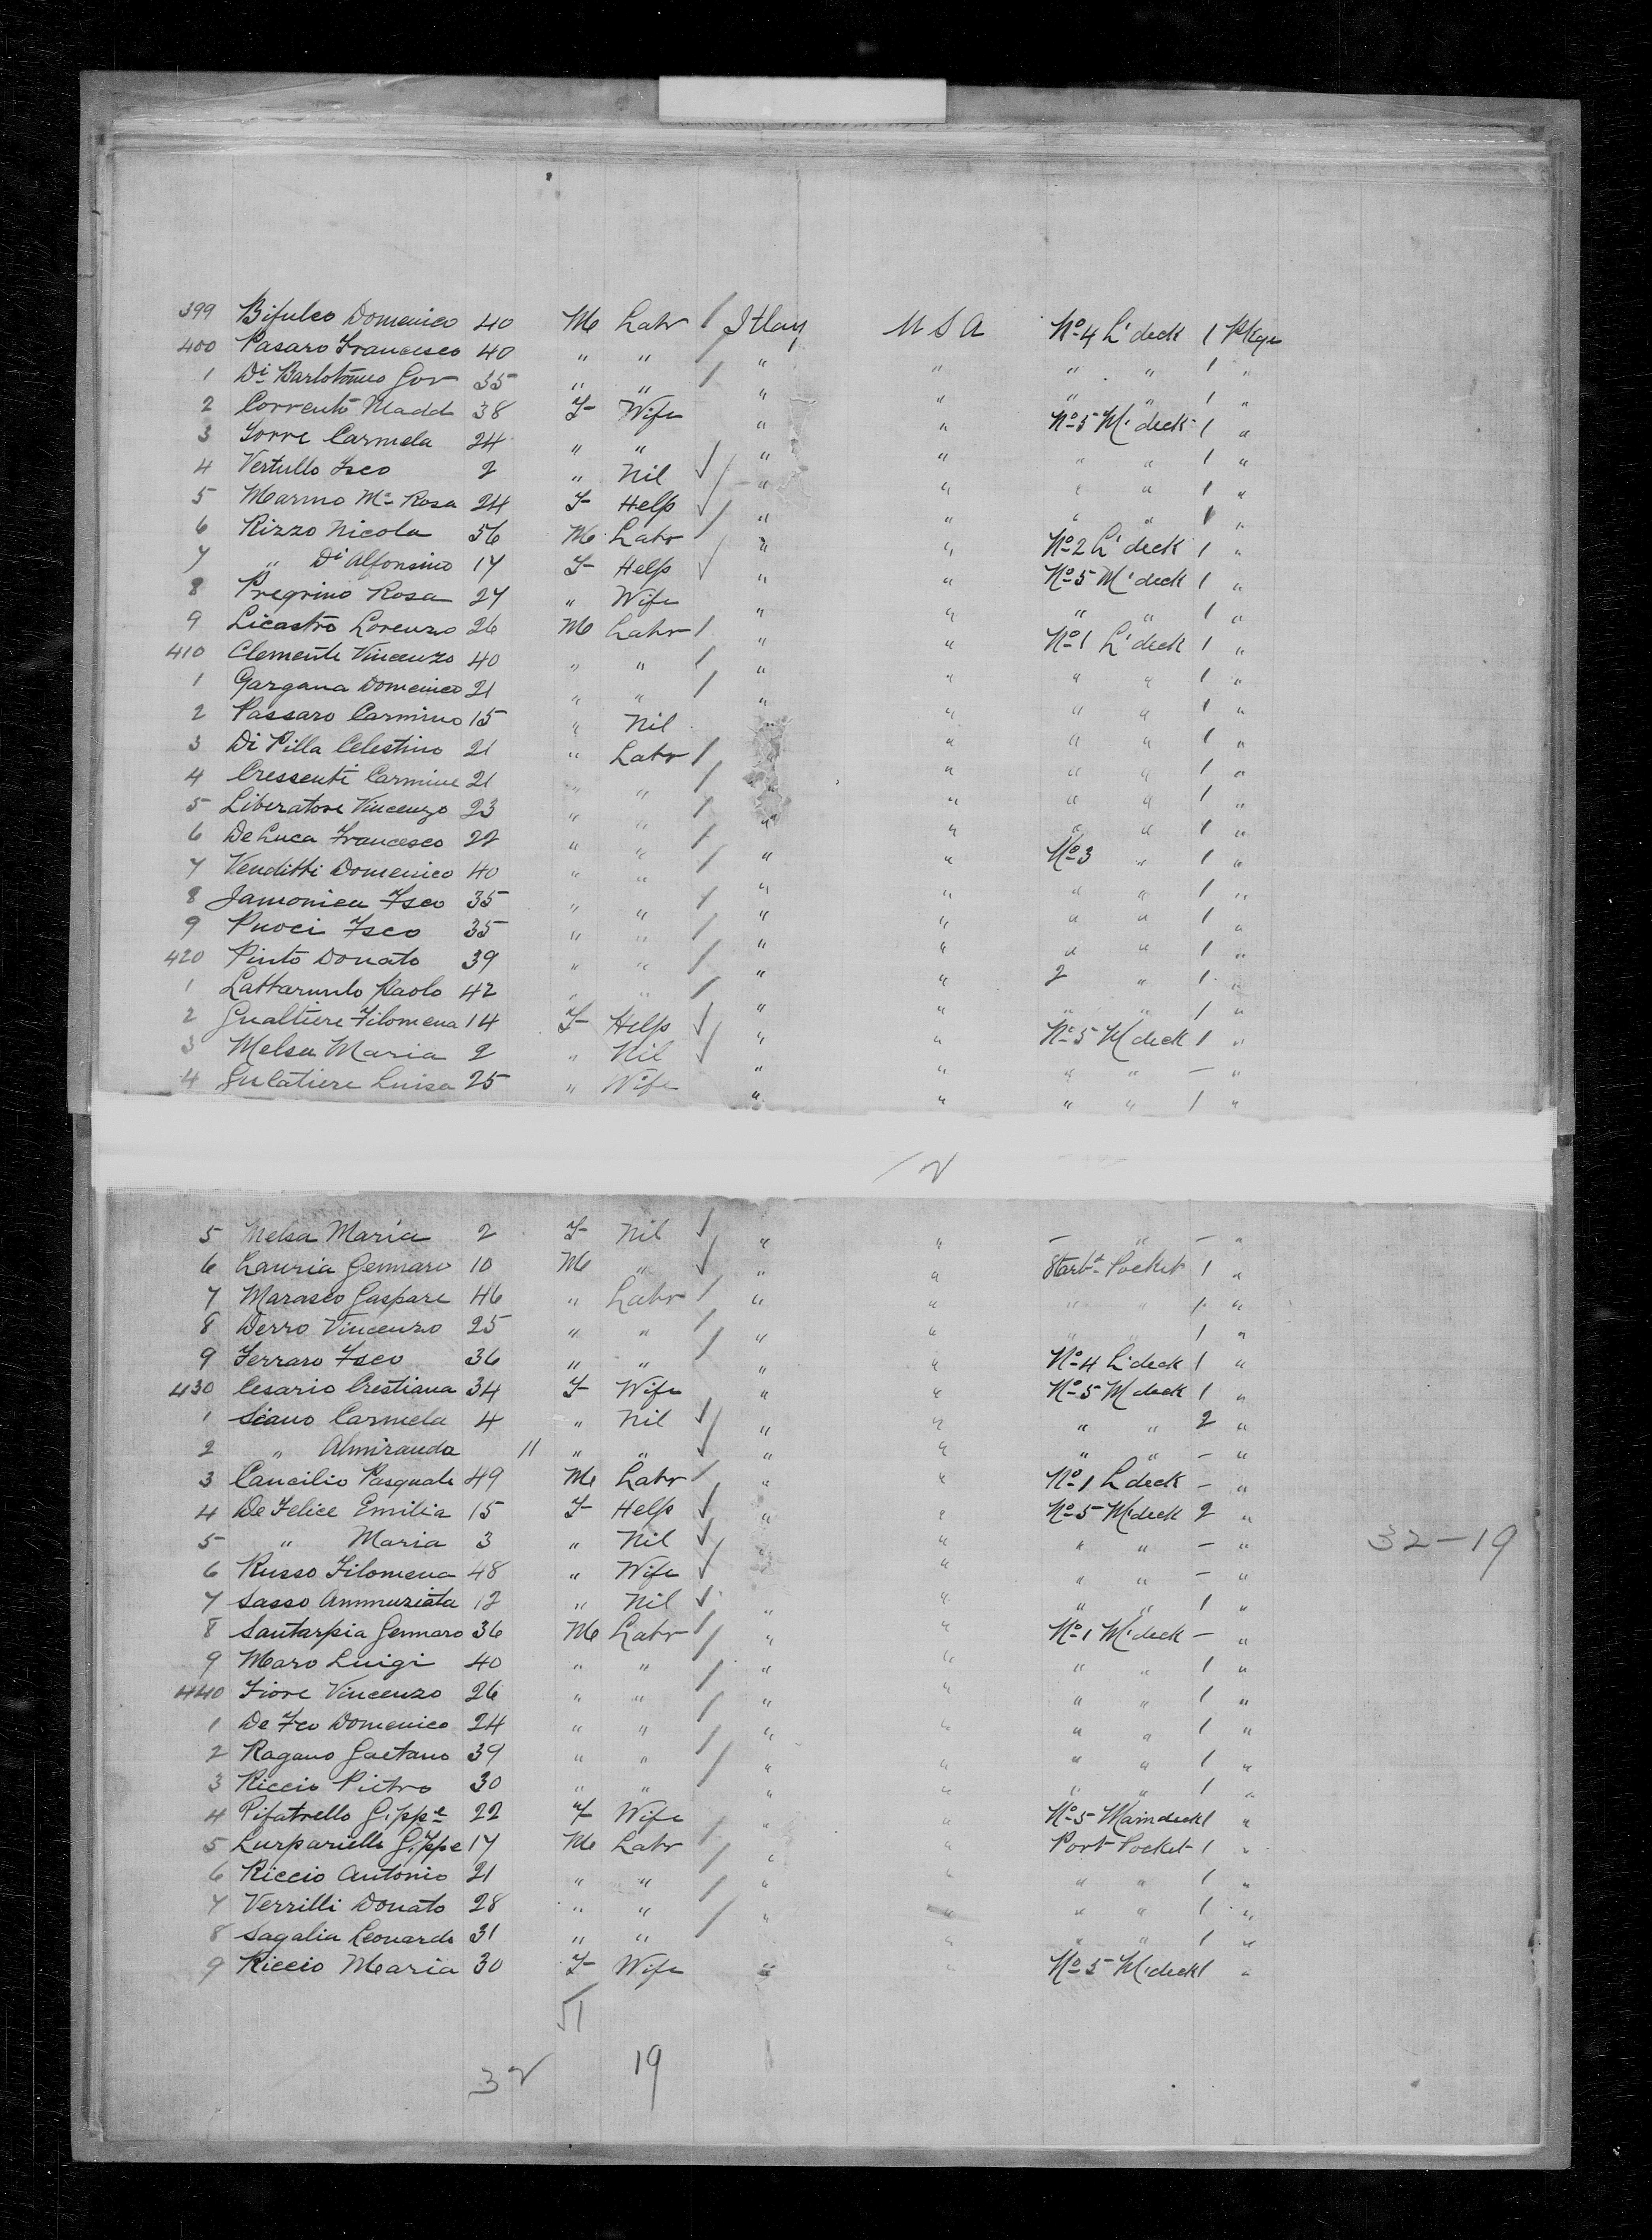 399 Bifulco Domenico 40 M Labr / Itlay U S A No 4 L' deck 1 Pkge
400 Pasaro Francesco 40 " " / " " " " 1 "
1 Di Bartolomeo Gov 35 " " / " " " " 1 "
2 Corrento Madd 38 F Wife " " No 5 M' deck 1 "
3 Torre Carmela 24 " " " " " " 1 "
4 Vertullo Fsco 2 " Nil ✓ " " " " 1 "
5 Marino Ma Rosa 24 F Help ✓ " " " " 1 "
6 Rizzo Nicola 56 M Labr / " " No 2 L' deck 1 "
7 " Di Alfonsino 17 F Help ✓ " " No 5 M' deck 1 "
8 Pregrino Rosa 27 " Wife " " " " 1 "
9 Licastro Lorenzo 26 M Labr / " " No 1 L' deck 1 "
410 Clemente Vincenzo 40 " " / " " " " 1 "
1 Gargana Domenico 21 " " / " " " " 1 "
2 Passaro Carmino 15 " Nil " " " " 1 "
3 Di Pilla Celestino 21 " Labr / " " " " 1 "
4 Cressenti Carmine 21 " " / " " " " 1 "
5 Liberatore Vincenzo 23 " " / " " " " 1 "
6 De Luca Francesco 22 " " / " " No 3 " 1 "
7 Venditti Domenico 40 " " / " " " " 1 "
8 Jamonica Fsco 35 " " / " " " " 1 "
9 Puoci Fsco 35 " " / " " " " 1 "
420 Pinto Donato 39 " " / " " 2 " 1 "
1 Lattarunlo Paolo 42 " " / " " " " 1 "
2 Gualtiere Filomena 14 F Help ✓ " " No 5 M deck 1 "
3 Melsa Maria 2 " Nil ✓ " " " " — "
4 Gulatiere Luisa 25 " Wife " " " " 1 "
5 Melsa Maria 2 F Nil ✓ " " — " — "
6 Lauria Gennaro 10 M " ✓ " " Starbd Pocket 1 "
7 Marasco Gaspare 46 " Labr / " " " " 1 "
8 Derro Vincenzo 25 " " / " " " " 1 "
9 Ferraro Fsco 36 " " / " " No 4 L' deck 1 "
430 Cesario Crestiana 34 F Wife " " No 5 M deck 1 "
1 Siano Carmela 4 " Nil ✓ " " " " 2 "
2 " Almiranda 11 " " ✓ " " " " — "
3 Cancilio Pasquale 49 M Labr / " " No 1 L deck — "
4 De Felice Emilia 15 F Help ✓ " " No 5 M' deck 2 "
5 " Maria 3 " Nil ✓ " " " " — " 32 — 19
6 Russo Filomena 48 " Wife ✓ " " " — "
7 Sasso Ammuriata 12 " Nil ✓ " " " " 1 "
8 Santarpia Gennaro 36 M Labr / " " No 1 M' deck — "
9 Maro Luigi 40 " " / " " " " 1 "
440 Fiore Vincenzo 26 " " / " " " " 1 "
1 De Fco Domenico 24 " " / " " " " 1 "
2 Ragano Gaetano 39 " " / " " " " 1 "
3 Riccio Pietro 30 " " / " " " " 1 "
4 Pifatrello Gippe 22 F Wife " " No 5 Maindeck 1 "
5 Lurparielli Gippe 17 M Labr / " " Port Pocket 1 "
6 Riccio Antonio 21 " " / " " " " 1 "
7 Verrilli Donato 28 " " / " " " " 1 "
8 Sagalia Leonardo 31 " " / " " " 1 "
9 Riccio Maria 30 F Wife " " No 5 M' deck 1 "
51
32 19